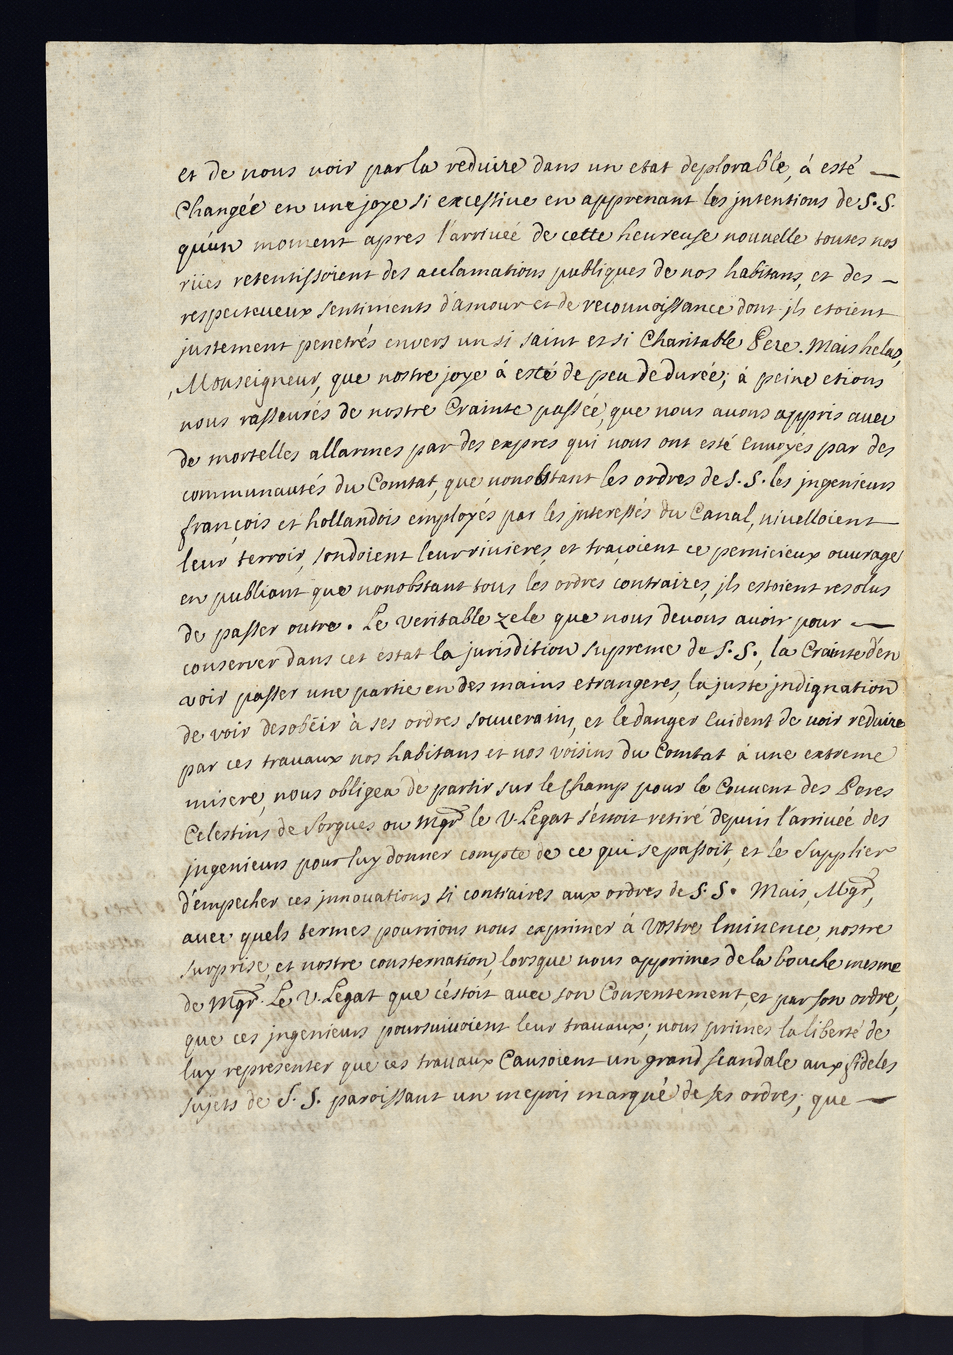 et de nous voir par la reduire dans un etat deplorable, à esté —
changée en une joye si excessive en apprenant les jntentions de S.S.
qu'un moment apres l'arrivéé de cette heureuse nouvelle toutes nos
rües retentissoient des acclamations publiques de nos habitans, et des —
respectueux sentiments d'amour et de reconnoissance dont jls etoient
justement penetrés envers un si saint et si charitable Pere. Mais helas,
Monseigneur, que nostre joye à esté de peu de durée; à peine etions
nous rasseurés de nostre Crainte passée, que nous avons appris avec
de mortelles allarmes par des expres qui nous ont esté envoyés par des
communautés du Comtat, que nonobstant les ordres de S.S. les jngenieurs
françois et hollandois employés par les jnteressés du Canal, nivelloient —
leur terroir, sondoient leur rivieres, et traçoient ce pernicieux ouvrage
en publiant que nonobstant tous les ordres contraires, jls estoient resolus
de passer outre. Le veritable zele que nous devons avoir pour —
conserver dans cet estat la jurisdition supreme de S.S., la Crainte d'en
voir passer une partie en des mains etrangeres, la juste jndignation
de voir desobëir à ses ordres souverains, et le danger evident de voir reduire
par ces travaux nos habitans et nos voisins du Comtat à une extreme
misere, nous obligea de partir sur le champ pour le Couvent des Peres
Celestins de Sorgues ou Mgr le V. Legat s'estoit retiré depuis l'arrivéé des
jngenieurs pour luy donner compte de ce qui se passoit, et le supplier
d'empecher ces jnnovations si contraires aux ordres de S.S. Mais, Mgr,
avec quels termes pourrions nous exprimer à Vostre Eminence, nostre
surprise, et nostre consternation, lorsque nous apprimes de la bouche mesme
de Mgr. Le V. Legat que c'estoit avec son Consentement, et par son ordre,
que ces jngenieurs poursuivoient leur travaux; nous primes la liberté de
luy representer que ces travaux Causoient un grand scandale aux fideles
sujets de S.S. paroissant un mepris marqué de ses ordres, que —